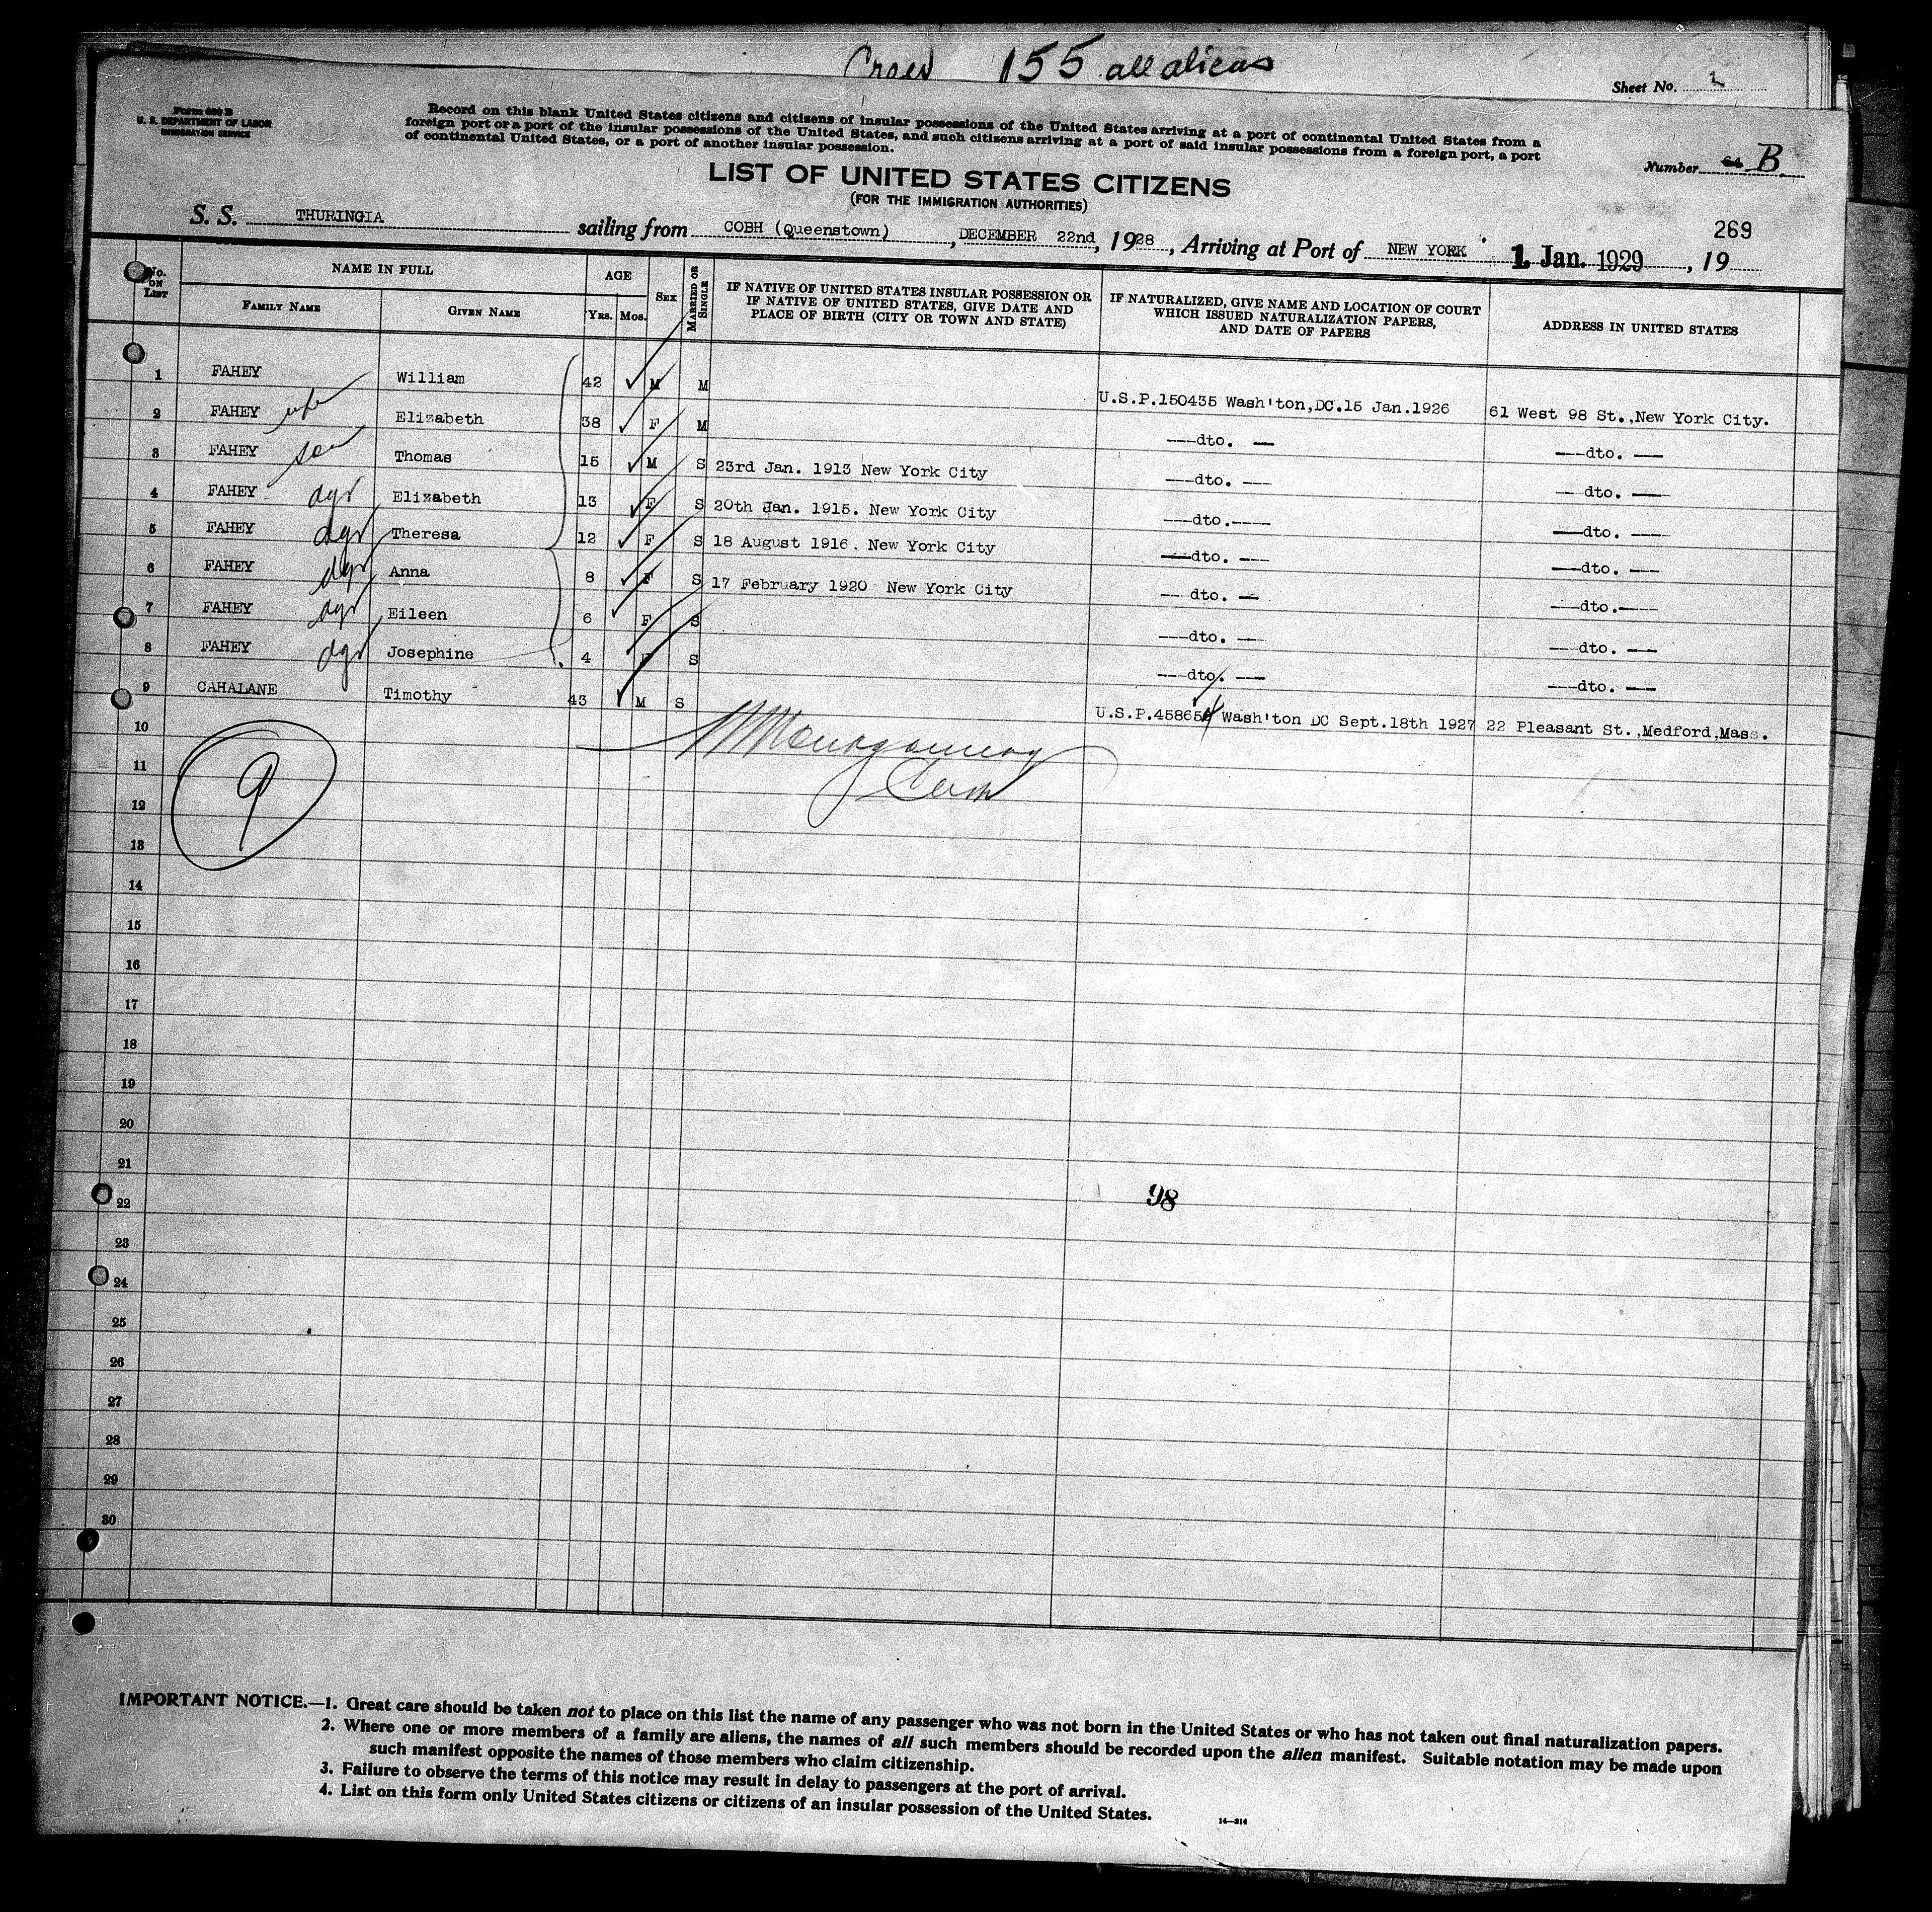 Crew 155 all aliens
Sheet No. 1
Form 630 B
U. S. DEPARTMENT OF LABOR
IMMIGRATION SERVICE
Record on this blank United States citizens and citizens of insular possessions of the United States arriving at a port of continental United States from a
foreign port or a port of the insular possessions of the United States, and such citizens arriving at a port of said insular possessions from a foreign port, a port
of continental United States, or a port of another insular possession.
Number B
LIST OF UNITED STATES CITIZENS
(FOR THE IMMIGRATION AUTHORITIES)
269
S. S. THURINGIA sailing from COBH (Queenstown), DECEMBER 22nd, 1928, Arriving at Port of NEW YORK 1 Jan. 1929, 19
No. ON LIST NAME IN FULL AGE SEX MARRIED OR SINGLE IF NATIVE OF UNITED STATES INSULAR POSSESSION OR IF NATIVE OF UNITED STATES, GIVE DATE AND PLACE OF BIRTH (CITY OR TOWN AND STATE) IF NATURALIZED, GIVE NAME AND LOCATION OF COURT WHICH ISSUED NATURALIZATION PAPERS, AND DATE OF PAPERS ADDRESS IN UNITED STATES
FAMILY NAME GIVEN NAME YRS. MOS.
1 FAHEY William 42 M M U.S.P.150435 Wash'ton,DC.15 Jan.1926 61 West 98 St.,New York City.
2 FAHEY wife Elizabeth 38 F M ---dto. — ---dto. —
3 FAHEY son Thomas 15 M S 23rd Jan. 1913 New York City ---dto. --- ---dto. ---
4 FAHEY dgr Elizabeth 13 F S 20th Jan. 1915. New York City ---dto.---- ---dto. ---
5 FAHEY dgr Theresa 12 F S 18 August 1916. New York City ---dto. --- ---dto. ---
6 FAHEY dgr Anna 8 F S 17 February 1920 New York City ---dto. — ---dto.----
7 FAHEY dgr Eileen 6 F S ---dto. — ---dto. ---
8 FAHEY dgr Josephine 4 F S ---dto. --- ---dto. ---
9 CAHALANE Timothy 43 M S U.S.P.458654 Wash'ton DC Sept.18th 1927 22 Pleasant St.,Medford,Mass.
10
11
12
9
13
14
15
16
17
18
19
20
21
22
98
23
24
25
26
27
28
29
30
IMPORTANT NOTICE.—1. Great care should be taken not to place on this list the name of any passenger who was not born in the United States or who has not taken out final naturalization papers.
2. Where one or more members of a family are aliens, the names of all such members should be recorded upon the alien manifest. Suitable notation may be made upon
such manifest opposite the names of those members who claim citizenship.
3. Failure to observe the terms of this notice may result in delay to passengers at the port of arrival.
4. List on this form only United States citizens or citizens of an insular possession of the United States.
14—214